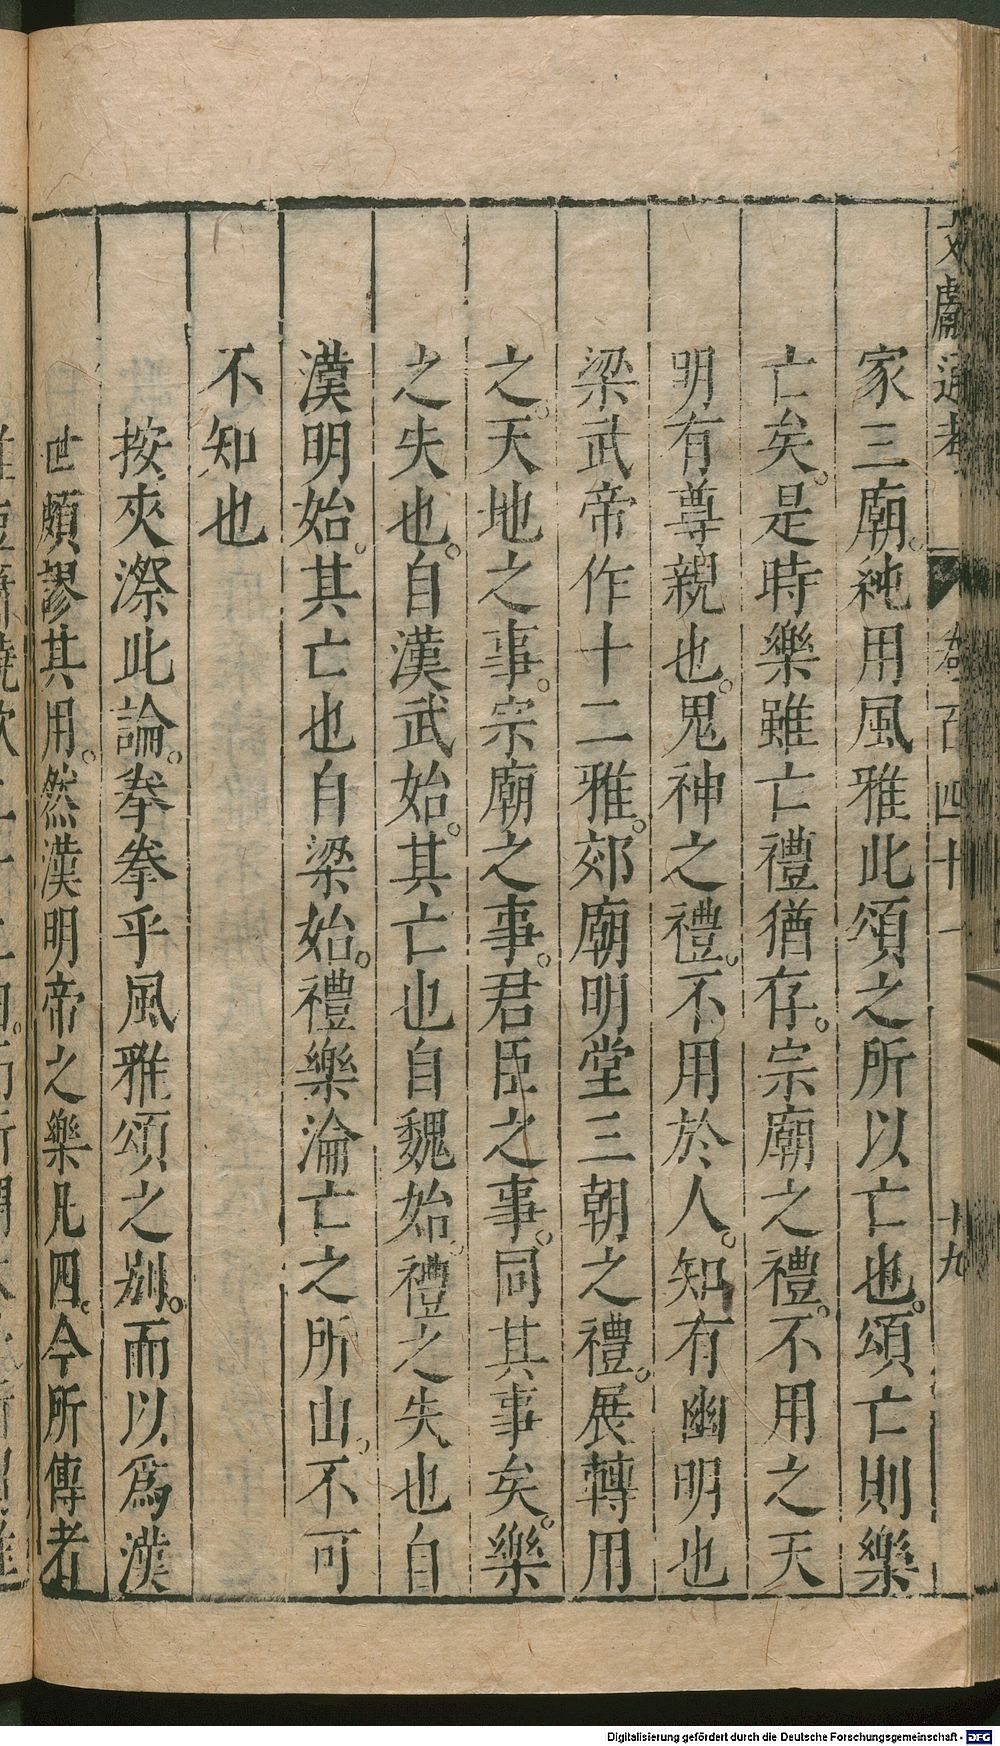 文獻通考 卷百四十一 十九
家三廟。純用風雅此頌之所以亡也。頌亡則樂
亡矣。是時樂雖亡禮猶存。宗廟之禮。不用之天
明有尊親也。鬼神之禮。不用於人。知有幽明也
梁武帝作十二雅。郊廟明堂三朝之禮。展轉用
之。天地之事。宗廟之事。君臣之事。同其事矣。樂
之失也。自漢武始。其亡也自魏始。禮之失也自
漢明始。其亡也自梁始。禮樂淪亡之所由。不可
不知也
按夾漈此論。拳拳乎風雅頌之別。而以爲漢
世頗謬其用。然漢明帝之樂凡四。今所傳者
Digitalisierung gefördert durch die Deutsche Forschungsgemeinschaft - DFG